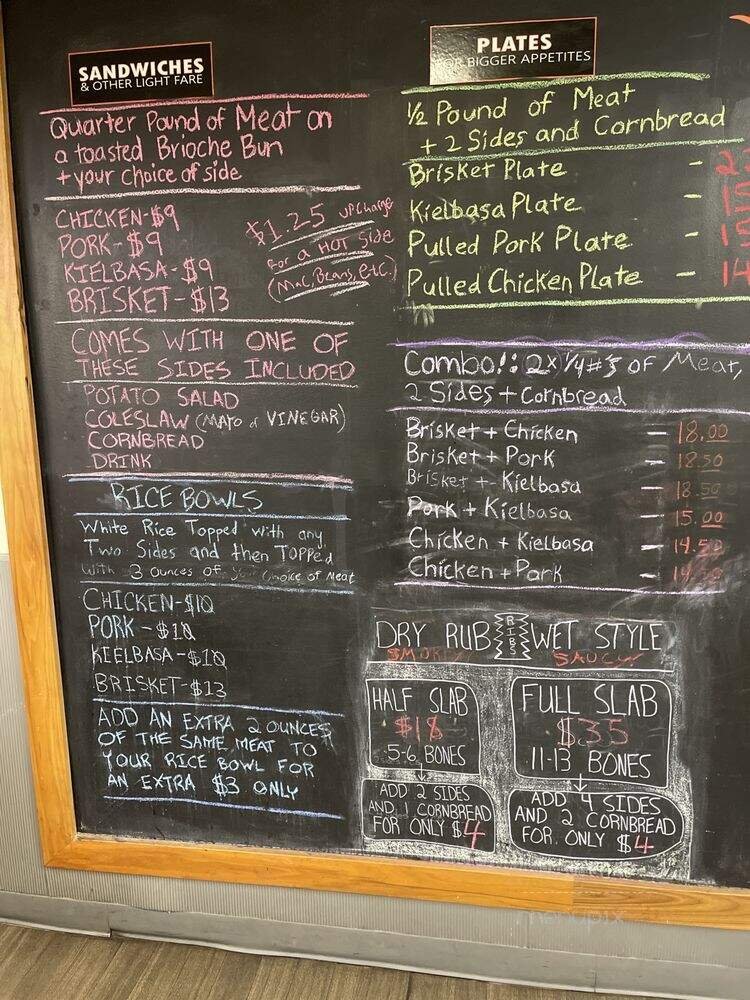 SANDWICHES
& OTHER LIGHT FARE
Quarter Pound of Meat on
a toasted Brioche Bun
+ your choice of side
CHICKEN-$9
PORK-$9
KIELBASA-$9
BRISKET-$13
$1.25 upcharge
For a HOT Side
(Mac, Beans, etc.)
COMES WITH ONE OF
THESE SIDES INCLUDED
POTATO SALAD
COLESLAW (MAYO or VINEGAR)
CORNBREAD
DRINK
RICE BOWLS
White Rice Topped with any
Two Sides and then Topped
with 3 ounces of your choice of Meat
CHICKEN-$10
PORK-$10
KIELBASA-$10
BRISKET-$13
ADD AN EXTRA 2 OUNCES
OF THE SAME MEAT TO
YOUR RICE BOWL FOR
AN EXTRA $3 ONLY
PLATES
FOR BIGGER APPETITES
1/2 Pound of Meat
+ 2 Sides and Cornbread
Brisket Plate -
Kielbasa Plate -
Pulled Pork Plate -
Pulled Chicken Plate - 14
Combo!: 2x 1/4#'s OF Meat,
2 Sides + Cornbread
Brisket + Chicken - 18.00
Brisket + Pork - 18.50
Brisket + Kielbasa - 18.50
Pork + Kielbasa - 15.00
Chicken + Kielbasa - 14.50
Chicken + Pork -
DRY RUB RIBS WET STYLE
SMOKEY SAUCY!
HALF SLAB
$18
5-6 BONES
ADD 2 SIDES
AND 1 CORNBREAD
FOR ONLY $4
FULL SLAB
$35
11-13 BONES
ADD 4 SIDES
AND 2 CORNBREAD
FOR ONLY $4